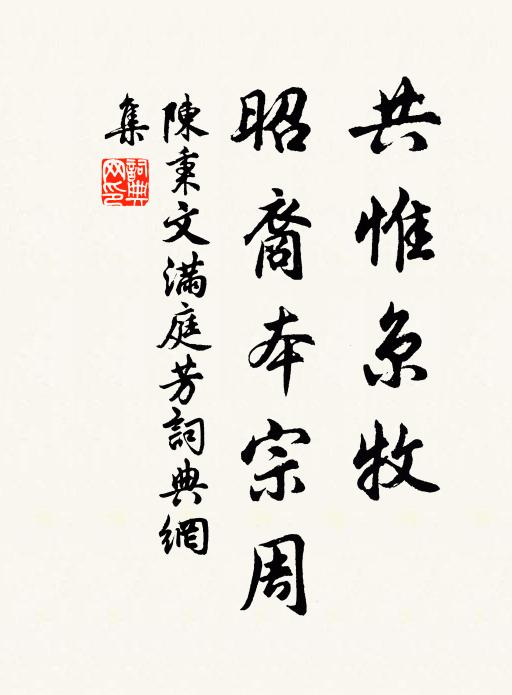 共惟京牧
昭裔本宗周
陳秉文滿庭芳詞典網
集
詞典網印